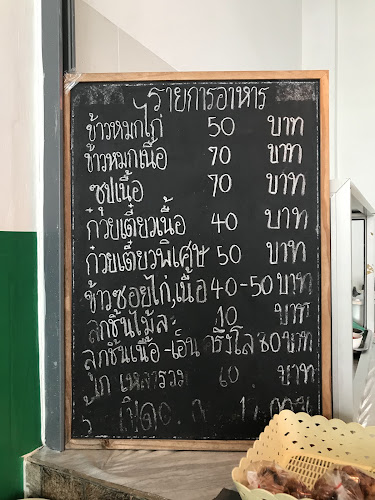 รายการอาหาร
ข้าวหมกไก่ 50 บาท
ข้าวหมกเนื้อ 70 บาท
ซุปเนื้อ 70 บาท
ก๋วยเตี๋ยวเนื้อ 40 บาท
ก๋วยเตี๋ยวพิเศษ 50 บาท
ข้าวซอยไก่,เนื้อ 40-50 บาท
ลูกชิ้นไม้ละ 10 บาท
ลูกชิ้นเนื้อ-เอ็น ครึ่งโล 80 บาท
บาท